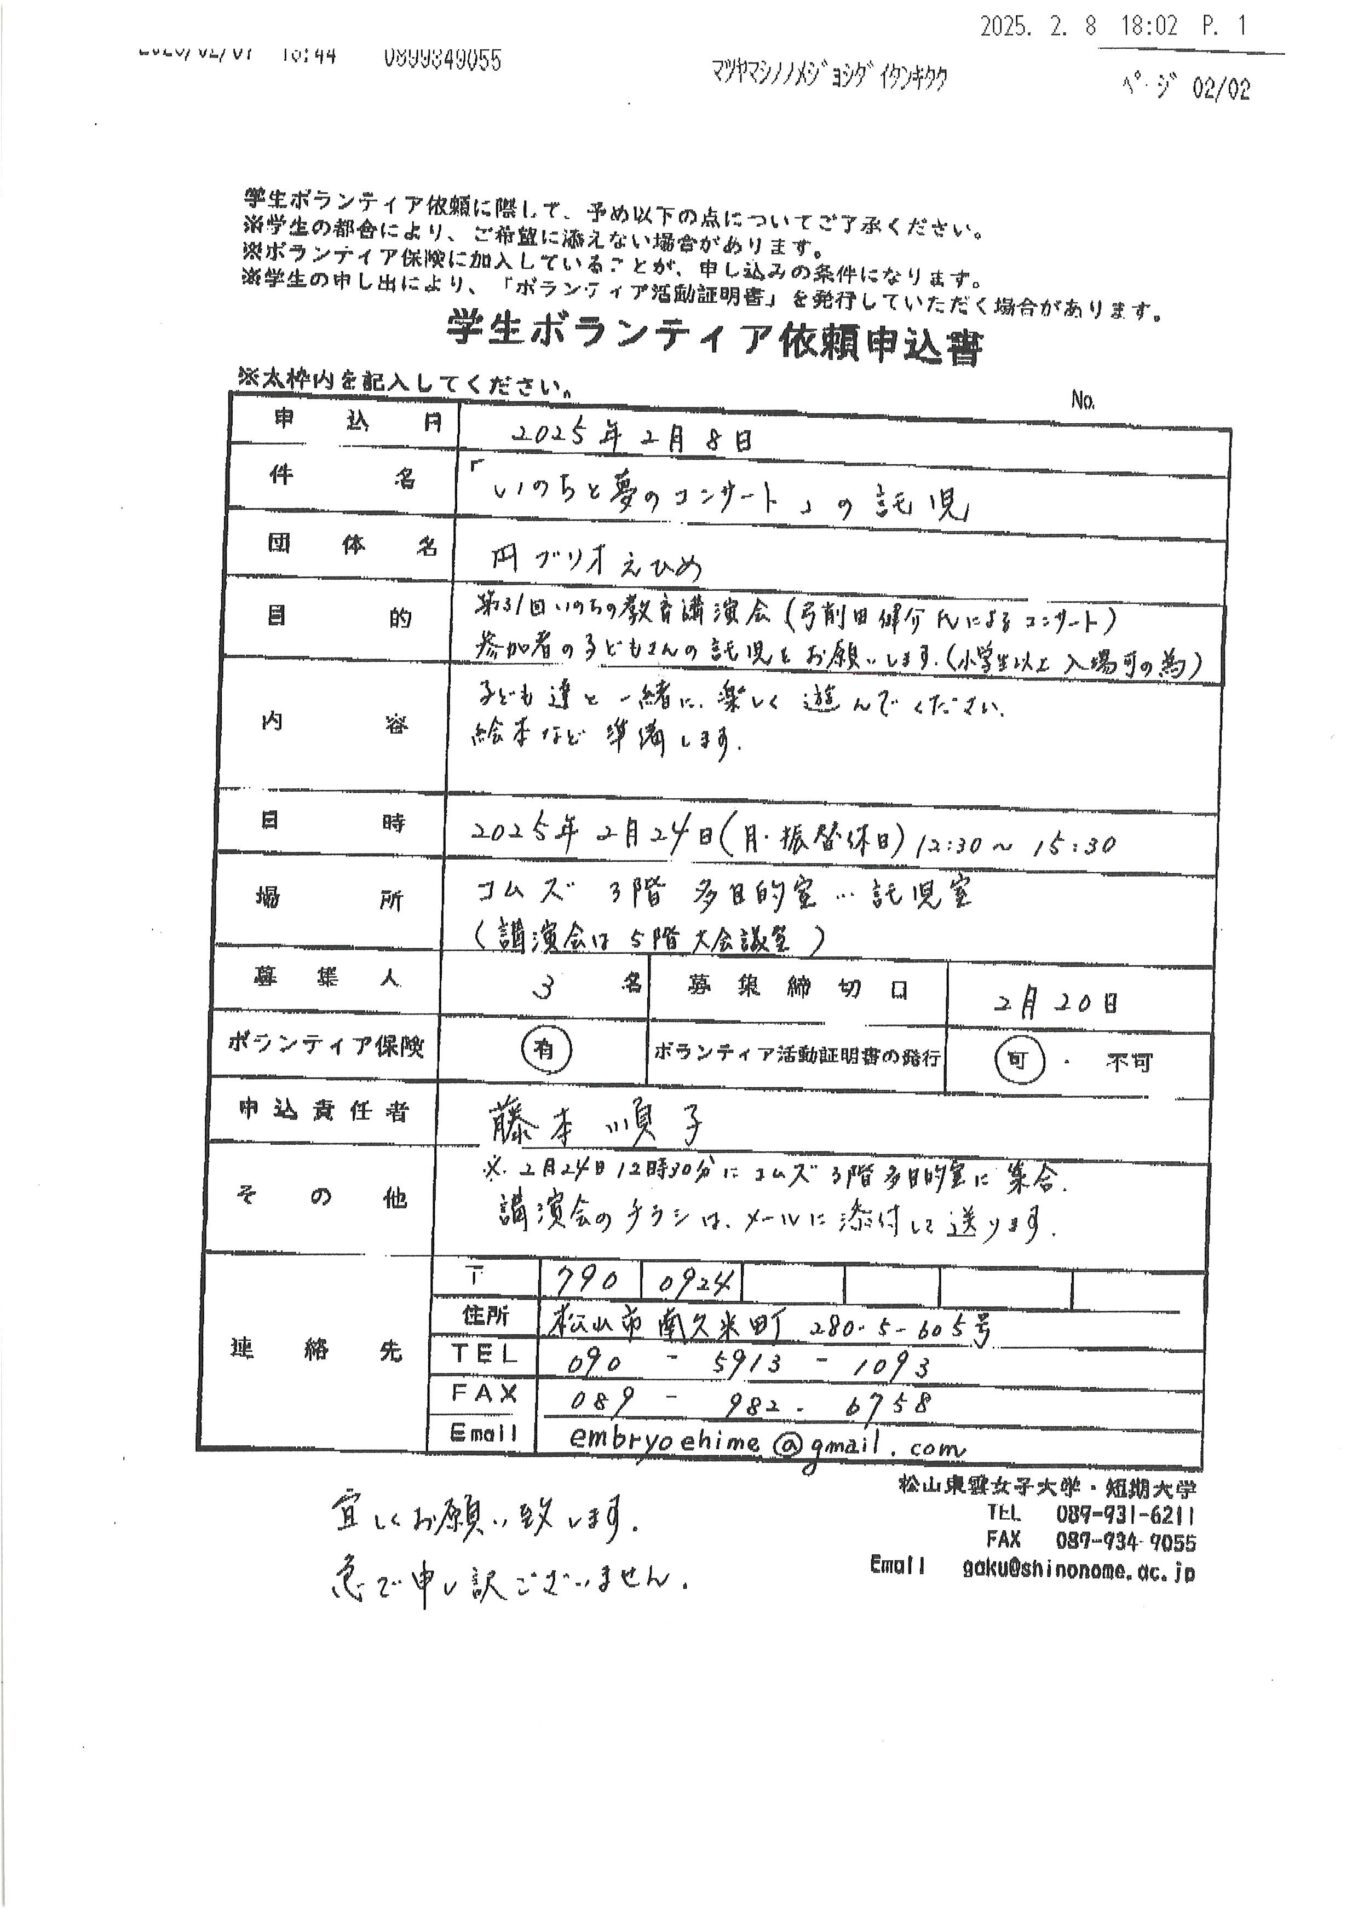 2025. 2. 8 18:02 P. 1
18:44 0899349055
マツヤマシノノメジョシダイタンキタク
ページ 02/02
学生ボランティア依頼に際して、予め以下の点についてご了承ください。
※学生の都合により、ご希望に添えない場合があります。
※ボランティア保険に加入していることが、申し込みの条件になります。
※学生の申し出により、「ボランティア活動証明書」を発行していただく場合があります。
学生ボランティア依頼申込書
※太枠内を記入してください。
No.
申込日 2025年2月8日
件名 「いのちと夢のコンサート」の託児
団体名 円ブリオえひめ
目的 第31回いのちの教育講演会(弓削田健介氏によるコンサート)
参加者の子どもさんの託児をお願いします.(小学生以上入場可の為)
内容 子ども達と一緒に、楽しく遊んでください.
絵本など準備します.
日時 2025年2月24日(月・振替休日)12:30〜15:30
場所 コムズ 3階 多目的室…託児室
(講演会は5階大会議室)
募集人 3名 募集締切日 2月20日
ボランティア保険 有 ボランティア活動証明書の発行 可・不可
申込責任者 藤本順子
その他 ※.2月24日12時30分にコムズ3階多目的室に集合.
講演会のチラシは、メールに添付して送ります.
連絡先
〒 790 0924
住所 松山市南久米町280-5-605号
TEL 090-5913-1093
FAX 089-982-6758
Email embryoehime@gmail.com
松山東雲女子大学・短期大学
TEL 089-931-6211
FAX 089-934-9055
Email gaku@shinonome.ac.jp
宜しくお願い致します.
急で申し訳ございません.